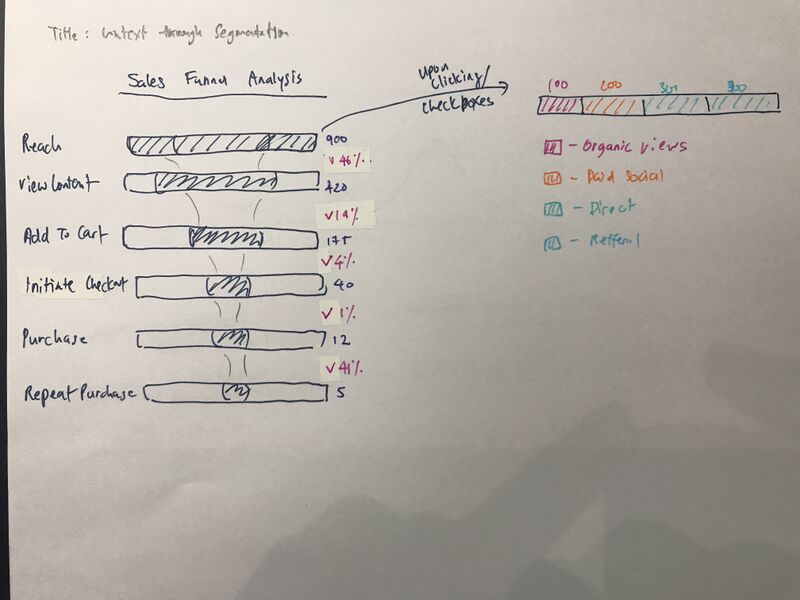 Title: Context through Segmentation.
Sales Funnel Analysis
upon
clicking/
checkboxes
100 200 301 300
Reach 900
46%
View Content 420
19%
Add To Cart 175
4%
Initiate Checkout 40
1%
Purchase 12
41%
Repeat Purchase 5
- Organic views
- Paid Social
- Direct
- Refferal